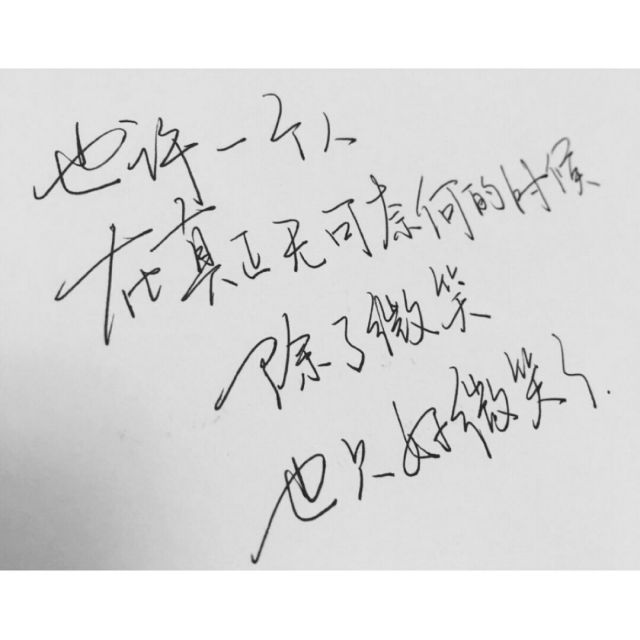 也许一个人
在真正无可奈何的时候
除了微笑
也只好微笑了.